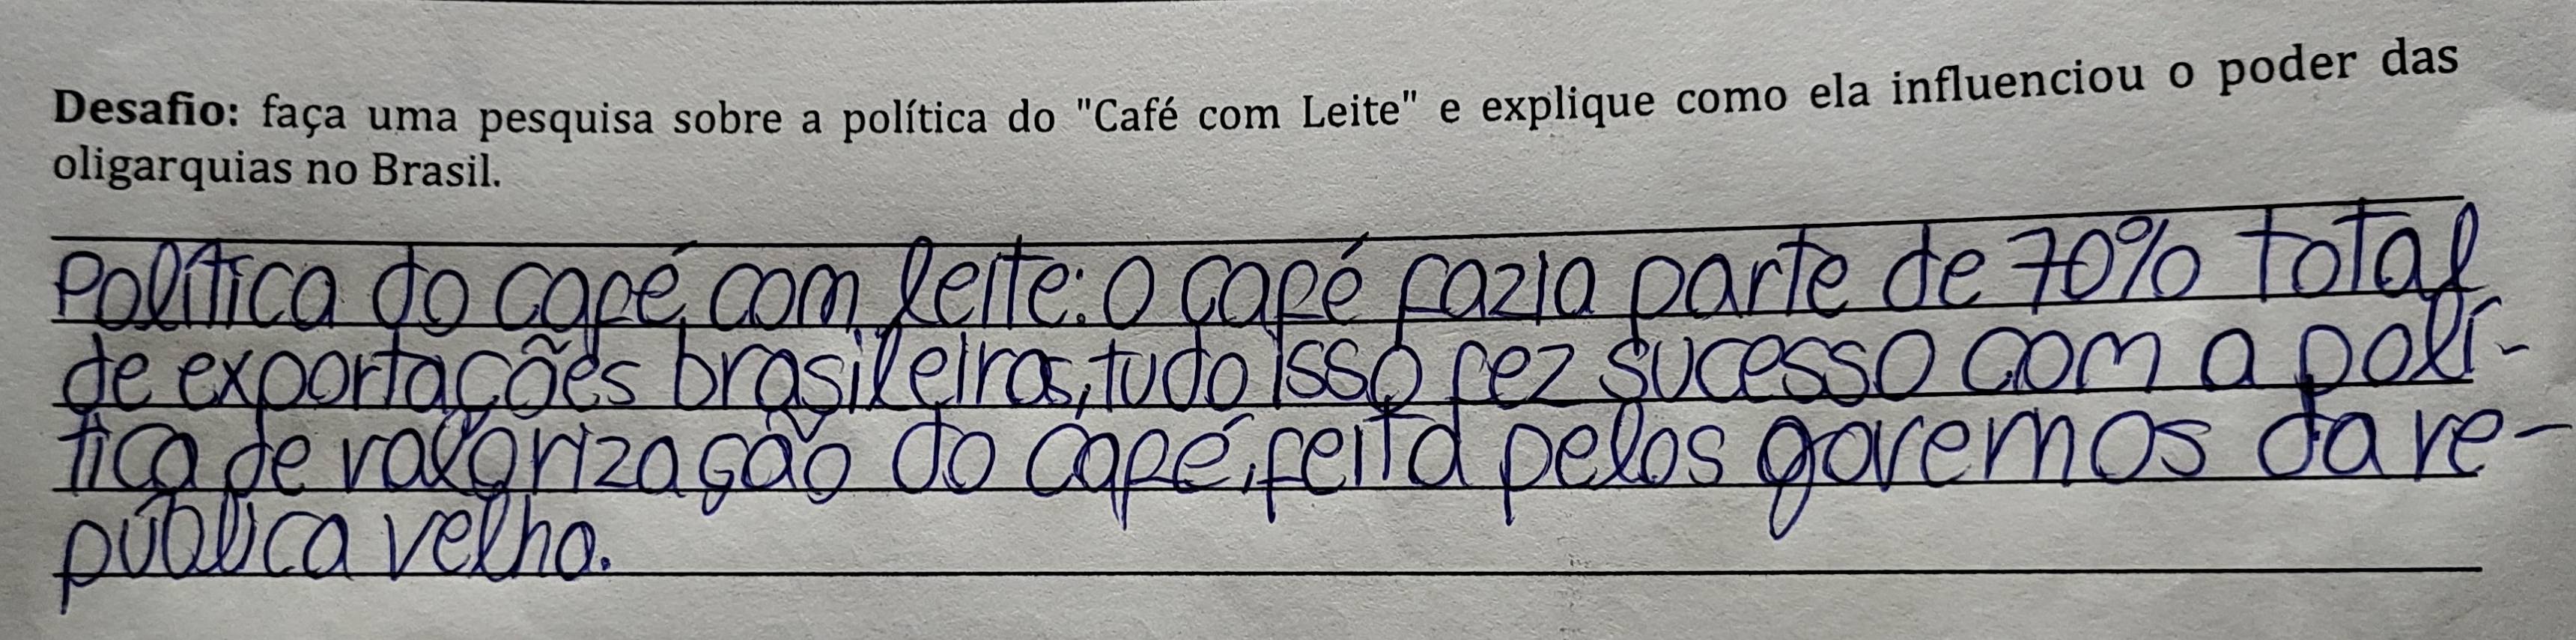 Desafio: faça uma pesquisa sobre a política do "Café com Leite" e explique como ela influenciou o poder das
oligarquias no Brasil.
Política do café com leite: O café fazia parte de 70% total
de exportações brasileiras, tudo isso fez sucesso com a polí-
tica de valorização do café, feita pelos governos da re-
pública velha.